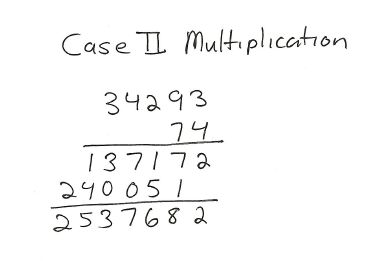 Case II Multiplication
34293
74
137172
240051
2537682